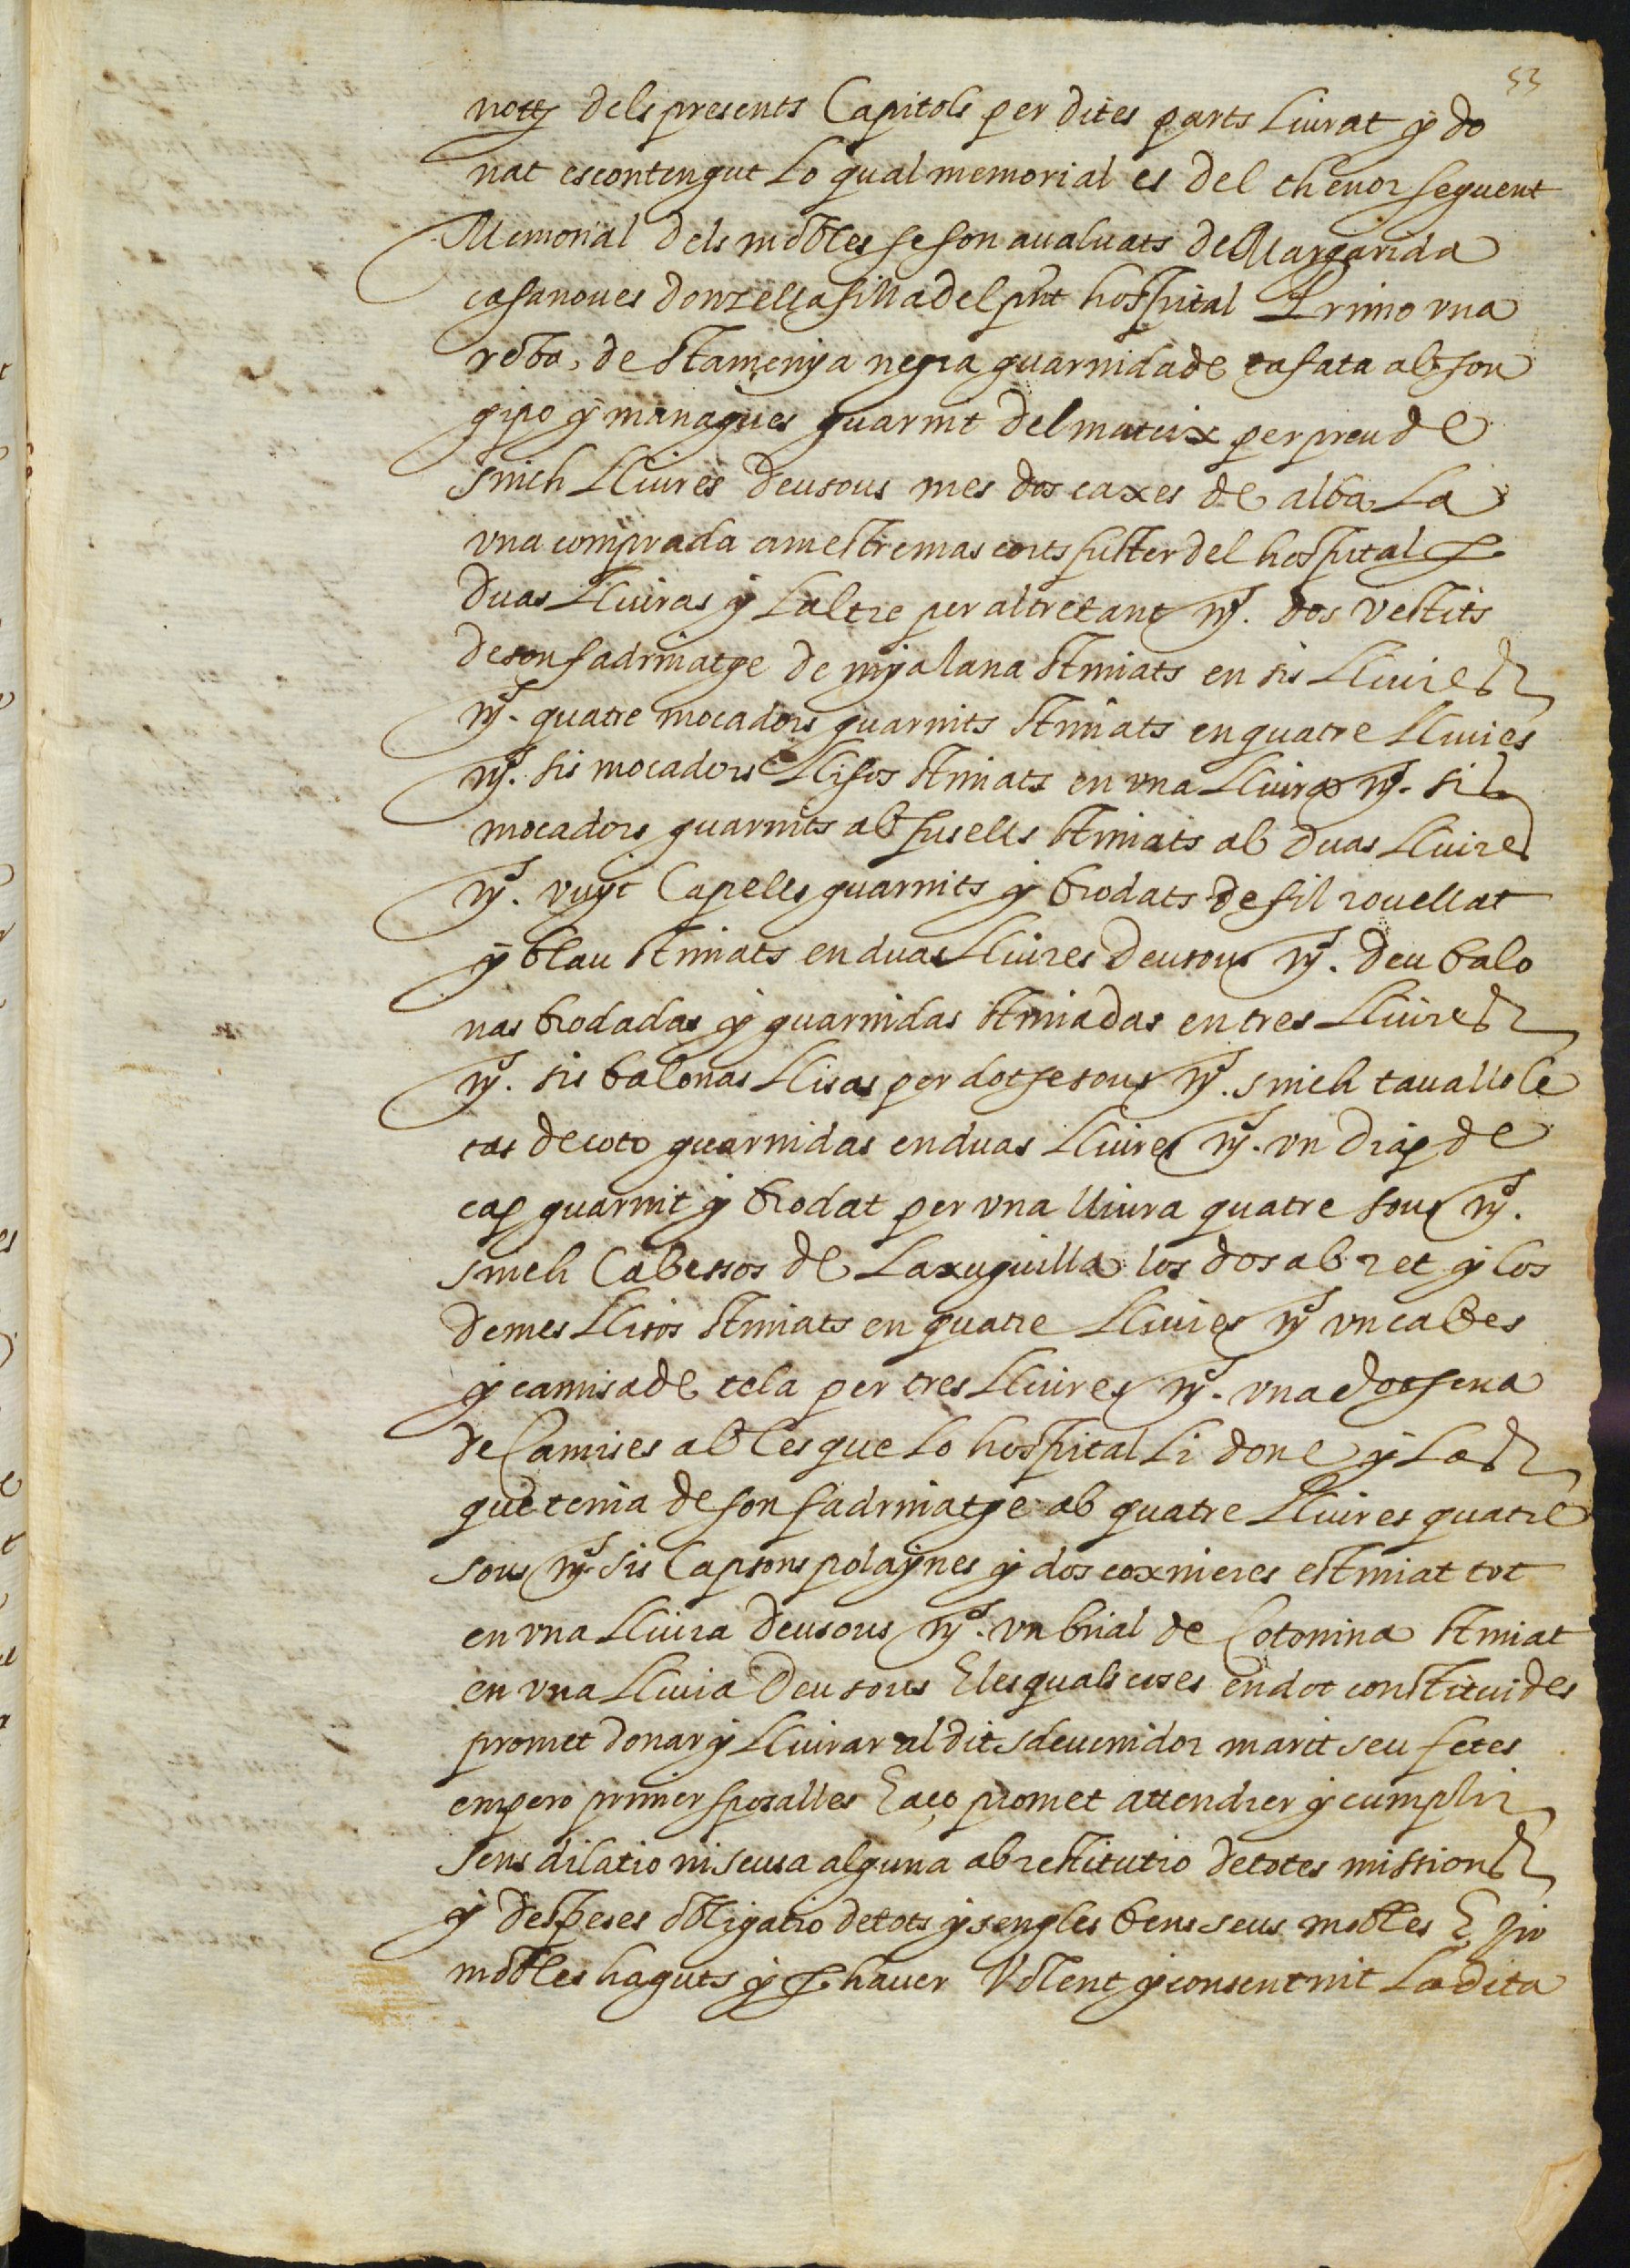 53
nots dels presents Capitols per dites parts Liurat y do
nat es contengut Lo qual memorial es del thenor seguent
Memorial dels mobles se son aualuats de Margarida
casanoues donzella filla del pnt hospital Primo vna
roba, de stamenya negra guarnida de tafata ab son
gipo y manegues guarnit del mateix per preu de
sinch Lliures deu sous mes dos caxes de alba La
vna comprada a mestre mascorts fuster del hospital per
duas Lliuras y Laltre per altre tant mes. dos vestits
de son fadrinatge de mija lana stimats en sis Lliures
mes. quatre mocadors guarnits stimats en quatre Lliures
mes. sis mocadors Llisos stimats en vna Lliura mes. sis
mocadors guarnits ab fusells stimats ab duas Lliures
mes. vuyt Capells guarnits y brodats de fil rouellat
y blau stimats en duas Lliures deu sous mes. deu balo
nas brodadas y guarnidas stimadas en tres Lliures
mes. sis balonas Llisas per dotse sous mes. sinch tauallole
tas de coto guarnidas en duas Lliures mes. vn drap de
cap guarnit y brodat per vna lliura quatre sous mes.
sinch Cabessos de Laxuguilla los dos ab ret y los
demes Llisos stimats en quatre Lliures mes vn cabes
y camisa de tela per tres Lliures mes. vna dotsena
de Camises ab les que Lo hospital Li done y Las
que tenia de son fadrinatge ab quatre Lliures quatre
sous mes sis Capsons polaynes y dos coxineres estimat tot
en vna Lliura deu sous mes. vn brial de Cotonina stimat
en vna Lliura deu sous E les quals coses en dot constituides
promet donar y Lliurar al dit sdeuenidor marit seu fetes
empero primer sposalles E aço promet attendrer y cumplir
sens dilatio ni scusa alguna ab restitutio de totes missions
y despeses obligatio de tots y sengles bens seus mobles E im
mobles haguts y per hauer Volent y consentint La dita